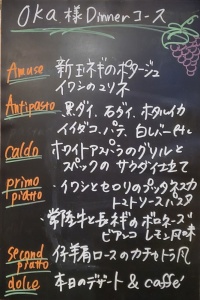 OKA 様 Dinnerコース
Amuse 新玉ネギのポタージュ
イワシのユリネ
Antipasto ・黒ダイ、石ダイ、ホタルイカ
イイダコ、パテ、白レバーetc
Caldo ホワイトアスパラのグリルと
スペックの サラダ仕立て
primo piatto ・イワシとセロリのプッタネスカ
トマトソースパスタ
・常陸牛と長ネギのボロネーズ
ビアンコ レモン風味
second piatto 仔羊肩ロースのカチャトラ風
dolce 本日のデザート & caffé